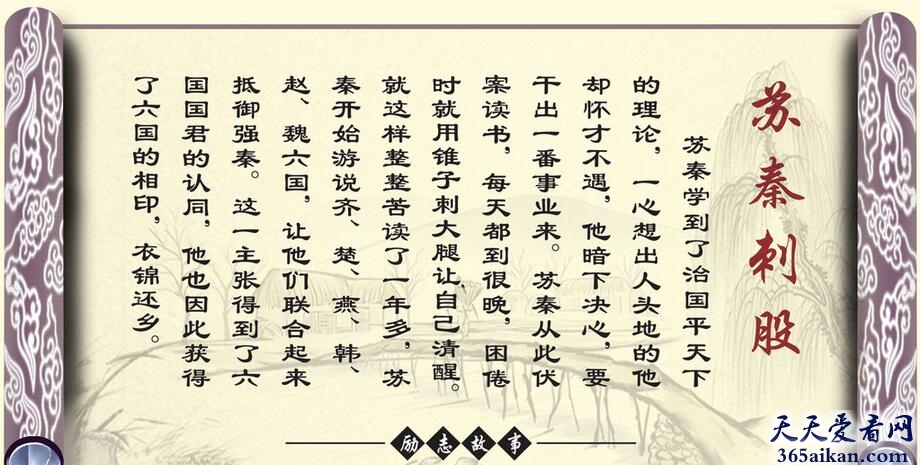 苏秦刺股
苏秦学到了治国平天下
的理论，一心想出人头地的他
却怀才不遇，他暗下决心，要
干出一番事业来。苏秦从此伏
案读书，每天都到很晚，困倦
时就用锥子刺大腿让自己清醒。
就这样整整苦读了一年多，苏
秦开始游说齐、楚、燕、韩、
赵、魏六国，让他们联合起来
抵御强秦。这一主张得到了六
国国君的认同，他也因此获得
了六国的相印，衣锦还乡。
励志故事
天天爱看网
365aikan.com